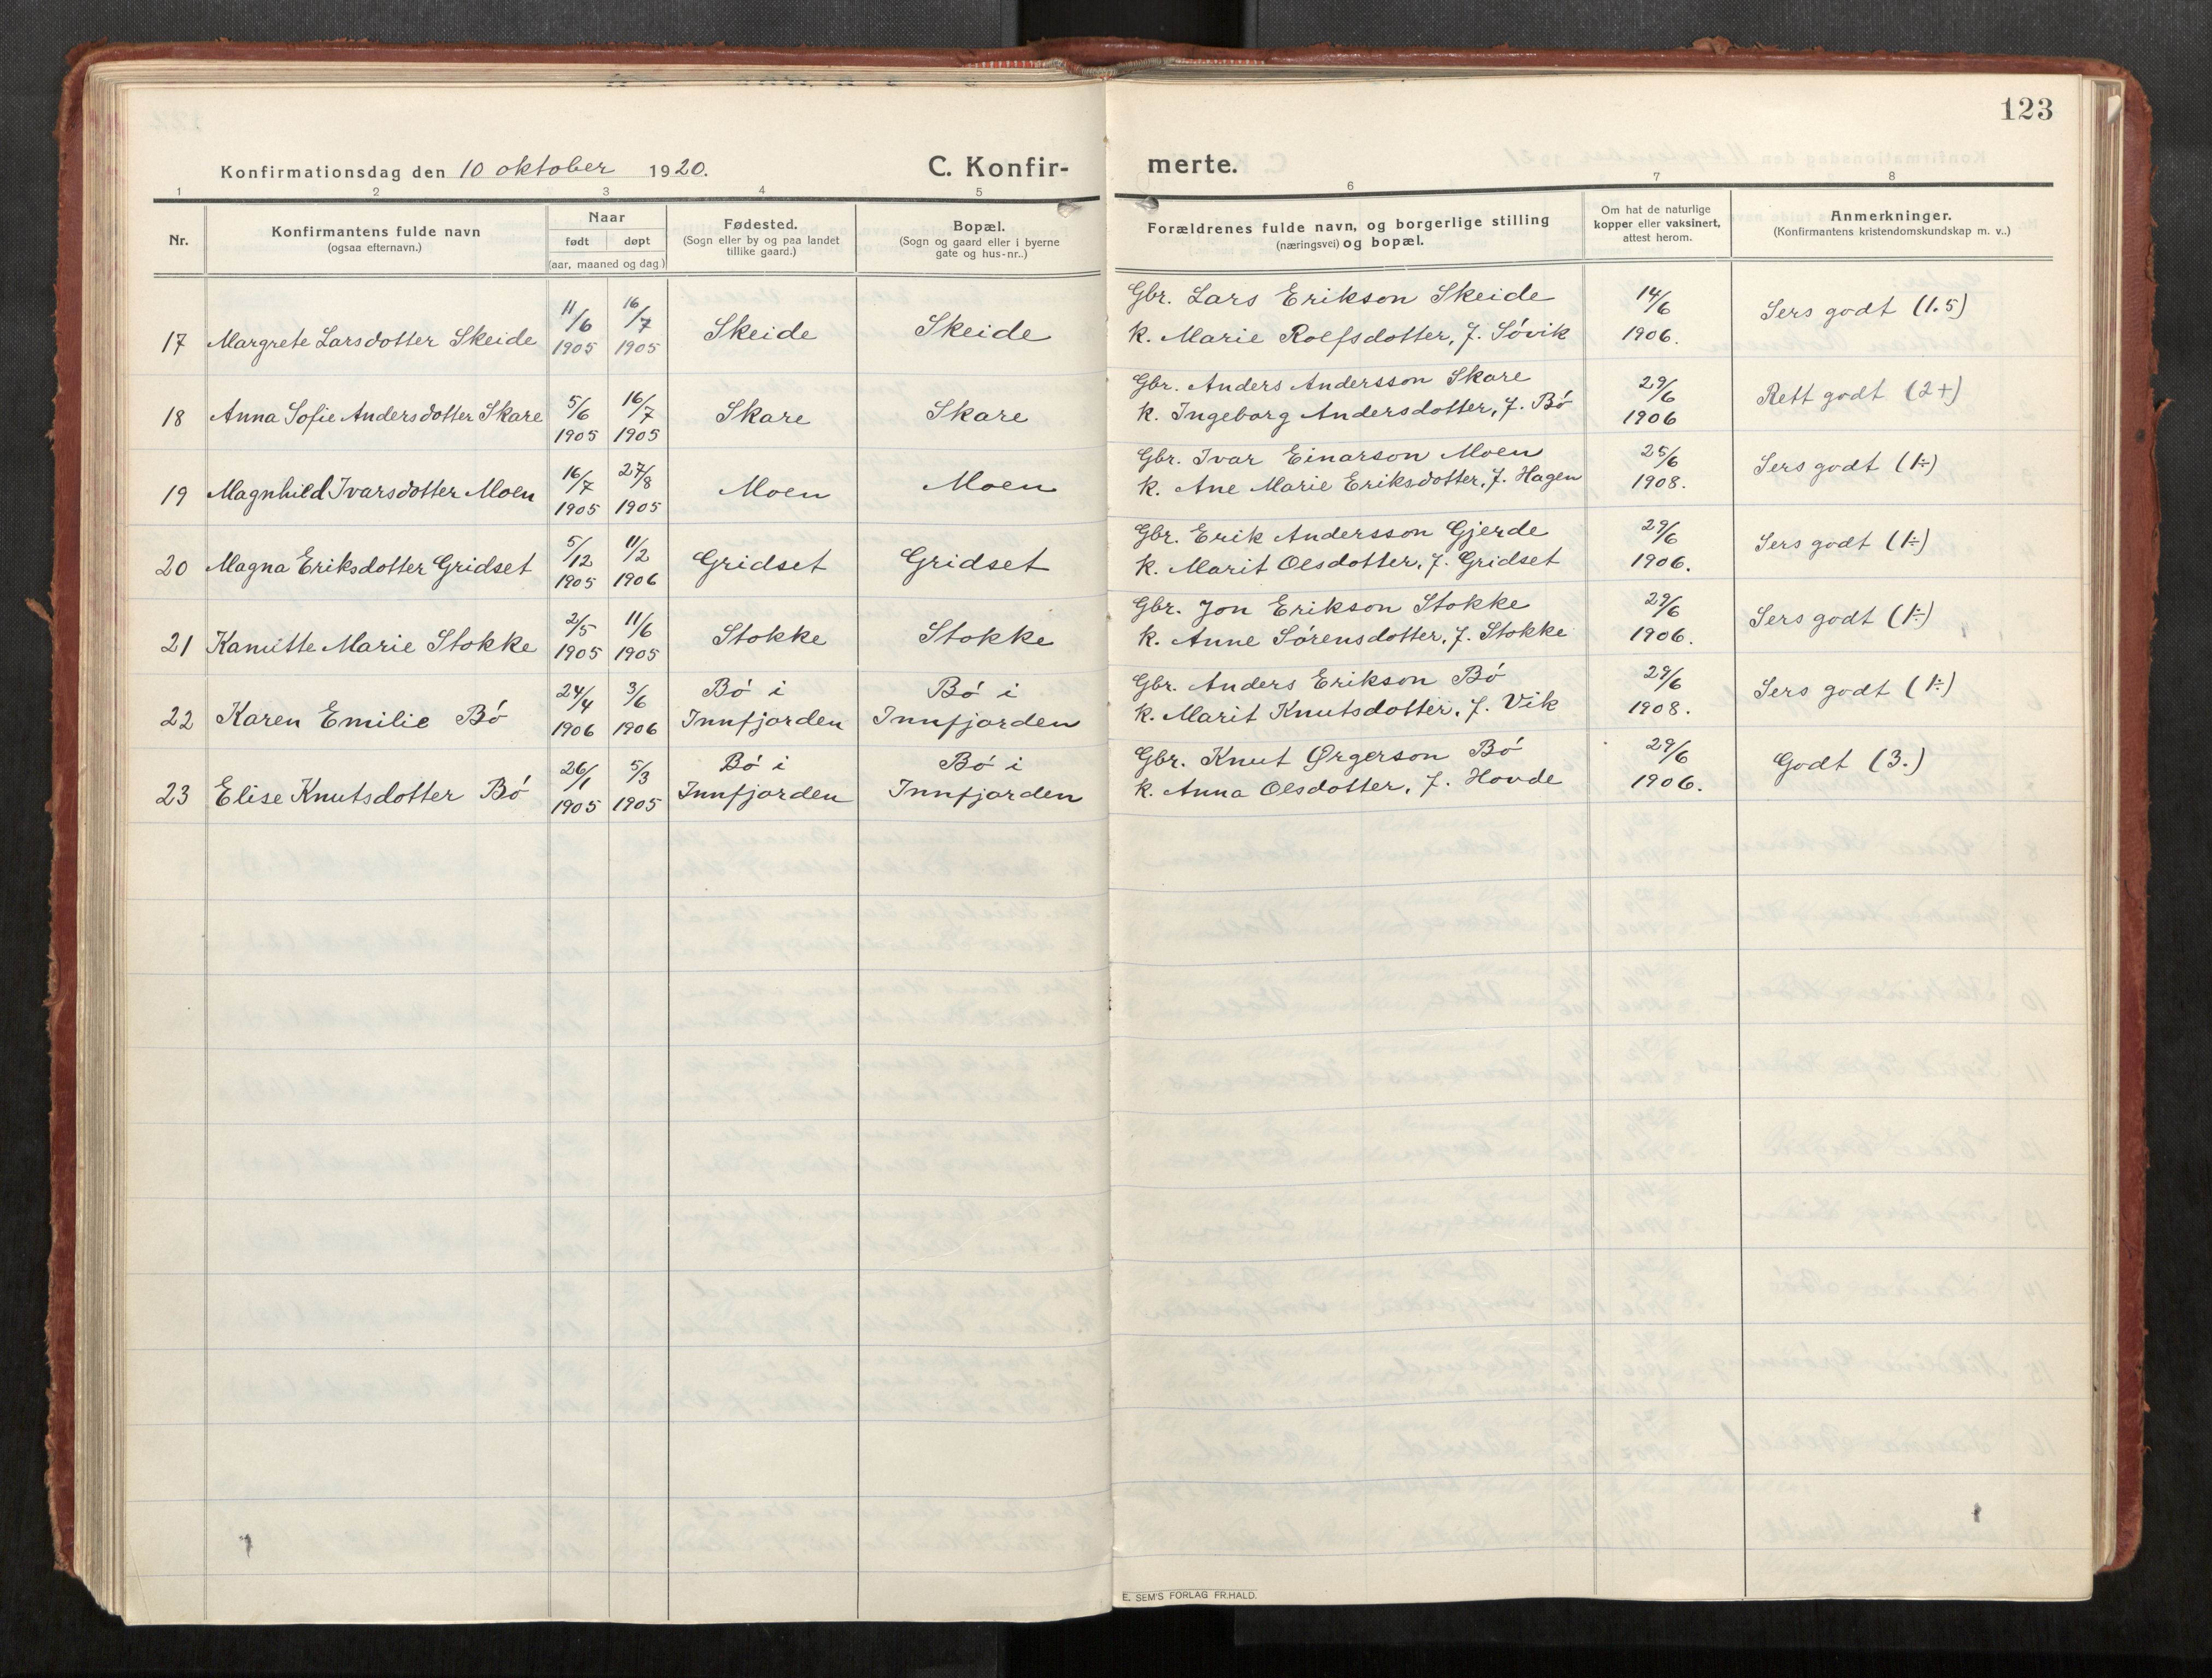 123
Konfirmationsdag den 10 oktober 1920.
C. Konfirmerte.
1 2 3 4 5 6 7 8
Nr.
Konfirmantens fulde navn
(ogsaa efternavn.)
Naar
født døpt
(aar, maaned og dag.)
Fødested.
(Sogn eller by og paa landet
tillike gaard.)
Bopæl.
(Sogn og gaard eller i byerne
gate og hus-nr..)
Forældrenes fulde navn, og borgerlige stilling
(næringsvei) og bopæl.
Om hat de naturlige
kopper eller vaksinert,
attest herom.
Anmerkninger.
(Konfirmantens kristendomskundskap m. v..)
17 Margrete Larsdotter Skeide 11/6 1905 16/7 1905 Skeide Skeide
Gbr. Lars Erikson Skeide
k. Marie Rolfsdotter, f. Søvik
14/6 1906. Sers godt (1.5)
18 Anna Sofie Andersdotter Skare 5/6 1905 16/7 1905 Skare Skare
Gbr. Anders Andersson Skare
k. Ingeborg Andersdotter, f. Bø
29/6 1906 Rett godt (2+)
19 Magnhild Ivarsdotter Moen 16/7 1905 27/8 1905 Moen Moen
Gbr. Ivar Einarson Moen
k. Ane Marie Eriksdotter, f. Hagen
25/6 1908. Sers godt (1÷)
20 Magna Eriksdotter Gridset 5/12 1905 11/2 1906 Gridset Gridset
Gbr. Erik Andersson Gjerde
k. Marit Olsdotter, f. Gridset
29/6 1906. Sers godt (1÷)
21 Kamitte Marie Stokke 2/5 1905 11/6 1905 Stokke Stokke
Gbr. Jon Erikson Stokke
k. Anne Sørensdotter, f. Stokke
29/6 1906. Sers godt (1÷)
22 Karen Emilie Bø 24/4 1906 3/6 1906 Bø i Innfjorden Bø i Innfjorden
Gbr. Anders Erikson Bø
k. Marit Knutsdotter, f. Vik
29/6 1908. Sers godt (1÷)
23 Elise Knutsdotter Bø 26/1 1905 5/3 1905 Bø i Innfjorden Bø i Innfjorden
Gbr. Knut Ørgerson Bø
k. Anna Olsdotter, f. Hovde
29/6 1906. Godt (3.)
E. SEM'S FORLAG FR.HALD.